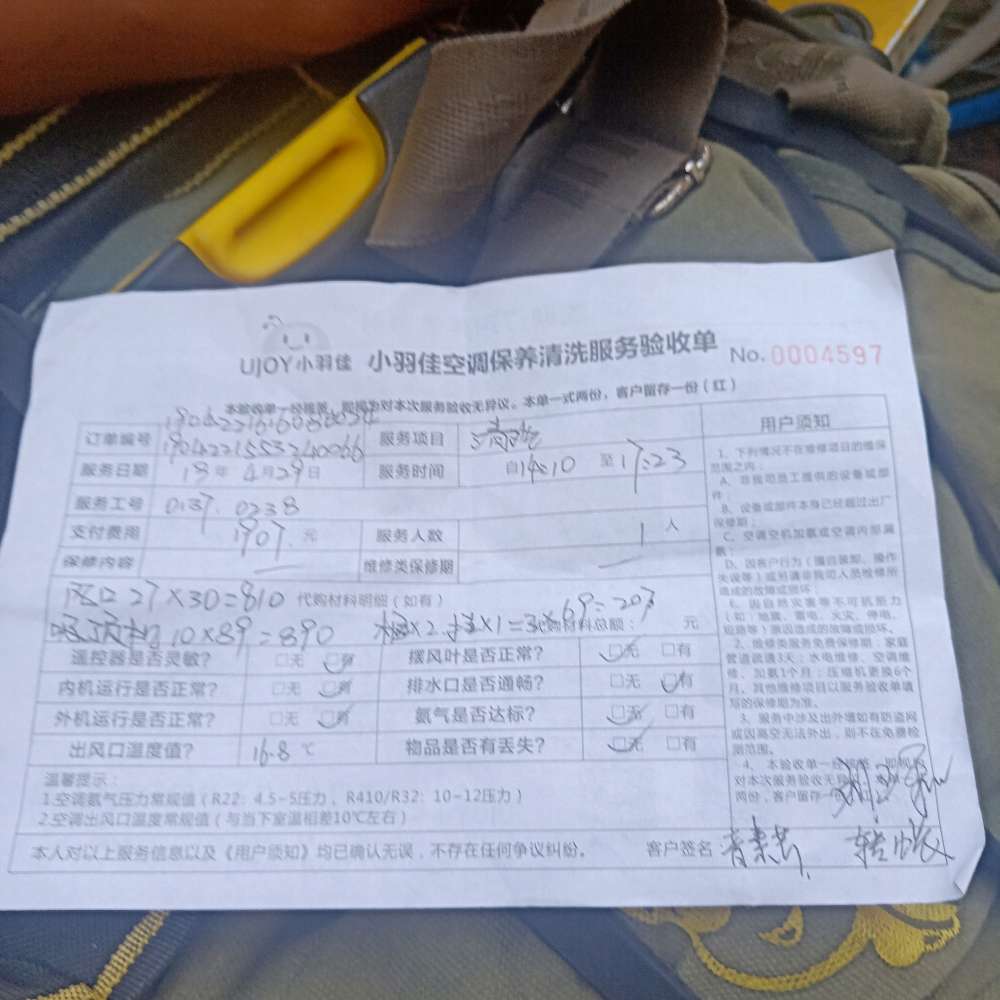 UJOY小羽佳 小羽佳空调保养清洗服务验收单 No.0004597
本验收单一经签署，即视为对本次服务验收无异议。本单一式两份，客户留存一份（红）
订单编号 1904221553240066 服务项目 清洗
服务日期 19年4月29日 服务时间 自14:10 至17:23
服务工号 0137. 0238
支付费用 1907.元 服务人数 1人
保修内容 — 维修类保修期 —
风口27×30=810 代购材料明细（如有）
吸顶机10×89=890 柜×2.挂×1=3×69=207 代购材料总额： 元
遥控器是否灵敏？ □无 □有 摆风叶是否正常？ □无 □有
内机运行是否正常？ □无 □有 排水口是否通畅？ □无 □有
外机运行是否正常？ □无 □有 氨气是否达标？ □无 □有
出风口温度值？ 16.8℃ 物品是否有丢失？ □无 □有
温馨提示：
1.空调氨气压力常规值（R22：4.5-5压力、R410/R32：10-12压力）
2.空调出风口温度常规值（与当下室温相差10℃左右）
本人对以上服务信息以及《用户须知》均已确认无误，不存在任何争议纠纷。 客户签名
用户须知
1、下列情况不在维修项目的维保
范围之内：
A、非我司员工提供的设备或部
件；
B、设备或部件本身已经超过出厂
保修期；
C、空调空机加氨或空调内部漏
氨；
D、因客户行为（擅自装卸、操作
失误等）或另请非我司人员检修所
造成的故障或损坏；
E、因自然灾害等不可抗能力
（如：地震、雷电、火灾、停电、
短路等）原因造成的故障或损坏。
2、维修类服务免费保修期：家庭
管道疏通3天；水电维修、空调维
修、加氨1个月；压缩机更换6个
月，其他维修项目以服务验收单填
写的保修期为准。
3、服务中涉及出外墙如有防盗网
或因高空无法外出，则不在免费检
测范围。
4、本验收单一经签署，即视为
对本次服务验收无异议
两份，客户留存一